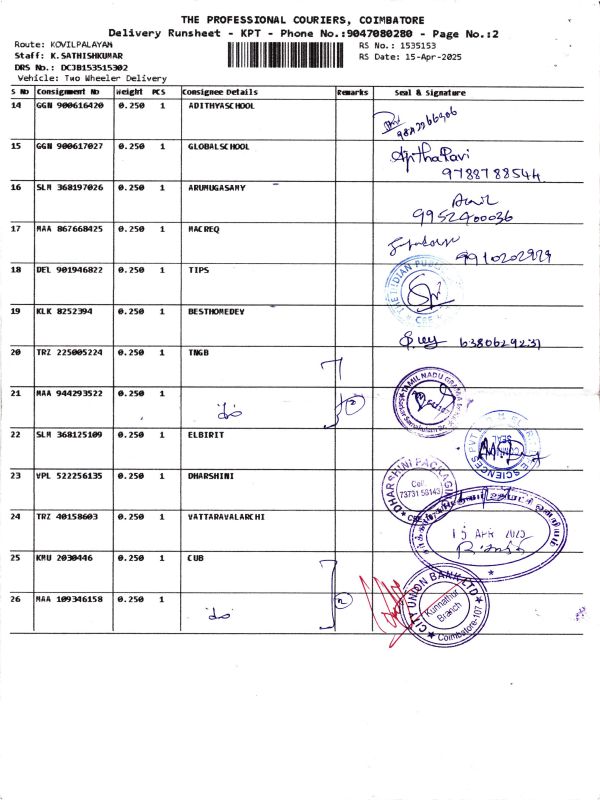 THE PROFESSIONAL COURIERS, COIMBATORE
Delivery Runsheet - KPT - Phone No.:9047080280 - Page No.:2
Route: KOVILPALAYAM
RS No.: 1535153
Staff: K.SATHISHKUMAR
RS Date: 15-Apr-2025
DRS No.: DCJB153515302
Vehicle: Two Wheeler Delivery
S No Consignment No Weight PCS Consignee Details Remarks Seal & Signature
14 GGN 900616420 0.250 1 ADITHYASCHOOL
15 GGN 900617027 0.250 1 GLOBALSCHOOL
9788788544
16 SLM 368197026 0.250 1 ARUMUGASAMY
9952400036
17 MAA 867668425 0.250 1 MACREQ
9910202929
18 DEL 901946822 0.250 1 TIPS
THE INDIAN PUBLIC
CBE
19 KLK 8252394 0.250 1 BESTHOMEDEY
6380629231
20 TRZ 225005224 0.250 1 TNGB
21 MAA 944293522 0.250 1 do 2
TAMIL NADU GRAMA
22 SLM 368125109 0.250 1 ELBIRIT
SCIENCES PVT
SEAL
23 VPL 522256135 0.250 1 DHARSHINI
DHARSHINI PACKAGING
Cell:
73731 56143
24 TRZ 40158603 0.250 1 VATTARAVALARCHI
15 APR 2025
25 KMU 2030446 0.250 1 CUB
26 MAA 109346158 0.250 1 do 2
CITY UNION BANK LTD
Kunnathur
Branch
Coimbatore-107